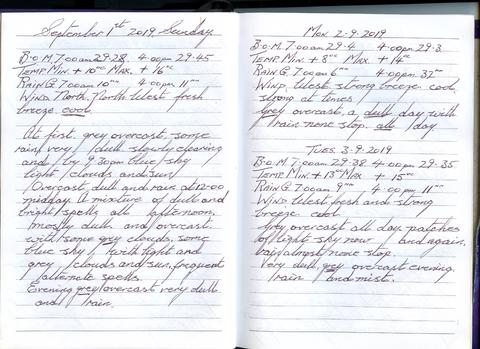 September 1st 2019 Sunday
B.O.M. 7.00am 29.38 4.00pm 29.45
TEMP. MIN. + 10°C MAX. + 16°C
RAIN G. 7.00am 10mm 4.00pm 11mm
WIND. North, North West fresh
breeze. cool
At first grey overcast, some
rain, very dull slowly clearing
and by 9.30am blue sky
light clouds and sun
Overcast, dull and rain at 12.00
midday. A mixture of dull and
bright spells all afternoon,
mostly dull and overcast.
with some grey clouds, some
blue sky with light and
grey clouds and sun, frequent
alternate spells
Evening grey overcast very dull
and rain.
MON 2-9-2019
B.O.M. 7.00am 29.4 4.00pm 29.3
TEMP. MIN. + 8°C MAX + 14°C
RAIN G. 7.00am 6mm 4.00pm 32mm
WIND. West strong breeze. cool,
strong at times
Grey overcast, a dull day with
rain none stop. all day
TUES 3-9-2019
B.O.M. 7.00am 29.38 4.00pm 29.35
TEMP. MIN + 13°C MAX + 15°C
RAIN G. 7.00am 9mm 4.00pm 11mm
WIND West fresh and strong
breeze. cool
Grey overcast all day. patches
of light sky now and again,
rain almost none stop.
Very dull, grey overcast evening.
rain and mist.